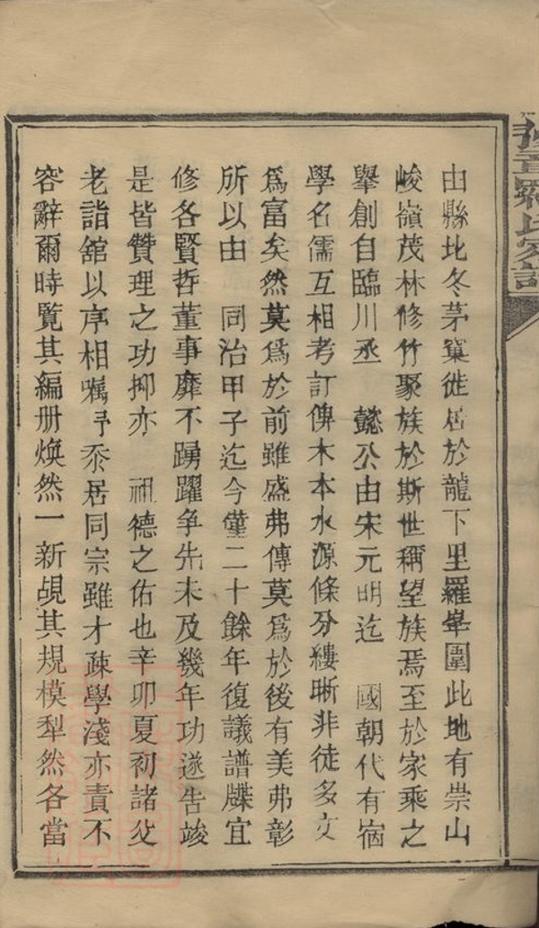 豫章羅氏家譜
由縣北冬茅窠徙居於龍下里羅峯圍此地有崇山
峻嶺茂林修竹聚族於斯世稱望族焉至於家乘之
舉創自臨川丞 懿公由宋元明迄 國朝代有宿
學名儒互相考訂俾木本水源條分縷晰非徒多文
爲富矣然莫爲於前雖盛弗傳莫爲於後有美弗彰
所以由 同治甲子迄今僅二十餘年復議譜牒宜
修各賢哲董事靡不踴躍争先未及幾年功遂告竣
是皆贊理之功抑亦 祖德之佑也辛卯夏初諸父
老詣舘以序相嘱予忝居同宗雖才疎學淺亦責不
容辭爾時覧其編册煥然一新覘其規模犁然各當